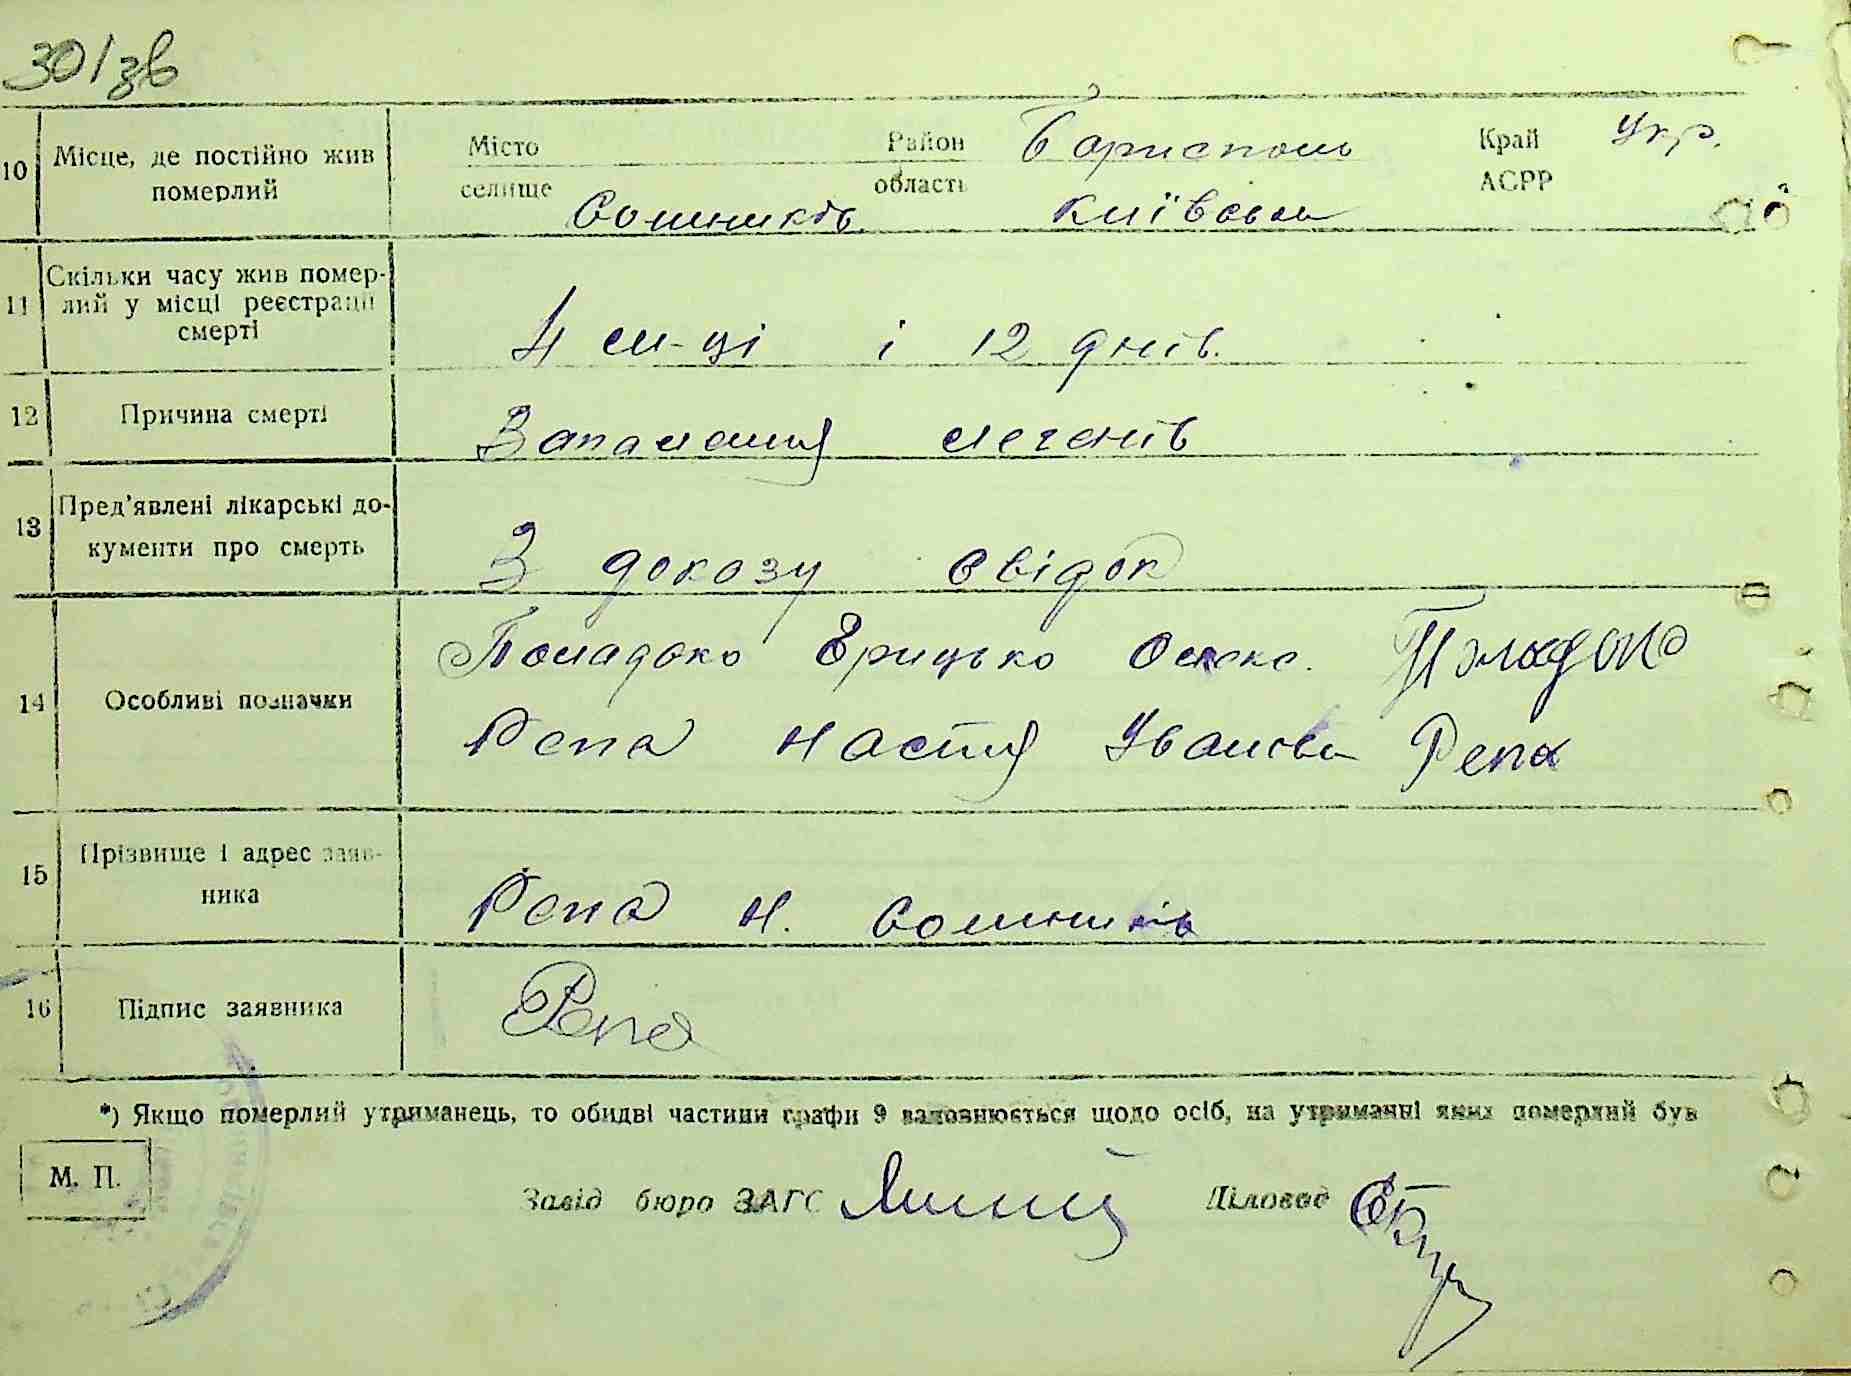 30/зв
10 Місце, де постійно жив померлий
Місто Район Бориспольс Край Укр.
селище Сошників область Київська АСРР
11 Скільки часу жив помер-
лий у місці реєстрації
смерті
4 м-ці і 12 днів.
12 Причина смерті Запалення легенів
13 Пред'явлені лікарські до-
кументи про смерть
З доказу свідок
14 Особливі позначки
Грицько Олекс.
Репа Настя Іванівн Репа
15 Прізвище і адрес заяв-
ника
Репа Н. Сошників
16 Підпис заявника Репа
*) Якщо померлий утриманець, то обидві частини графи 9 заповнюється щодо осіб, на утриманні яких померлий був
М. П.
Завід бюро ЗАГС Діловод